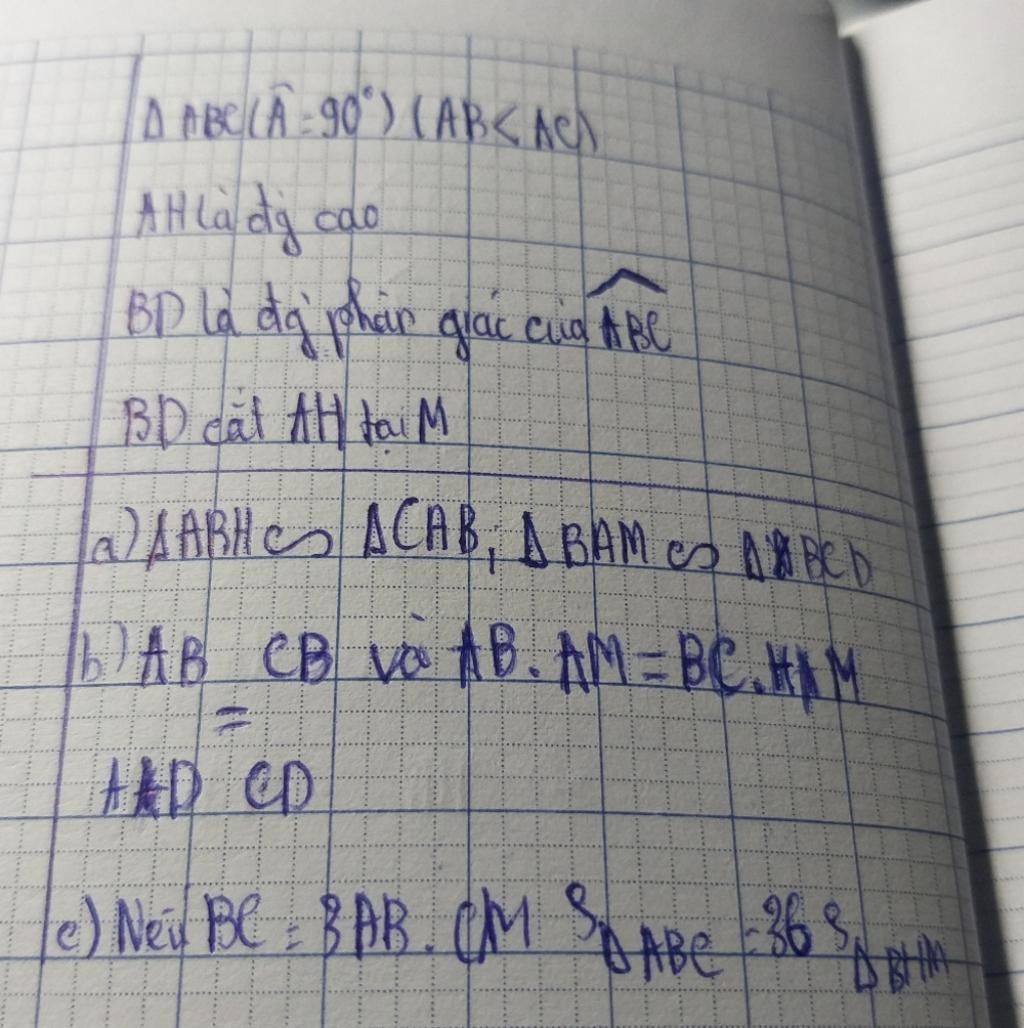 Δ ABC (Â = 90°) (AB < AC)
AH là đg cao
BD là đg phân giác của ABC
BD cắt AH tại M
a) ΔABH ∽ ΔCAB, Δ BAM ∽ Δ BCD
b) AB CB và AB. AM = BC. HM
=
AD CD
c) Nếu BC = 3AB. CM S Δ ABC = 36 S Δ BHM